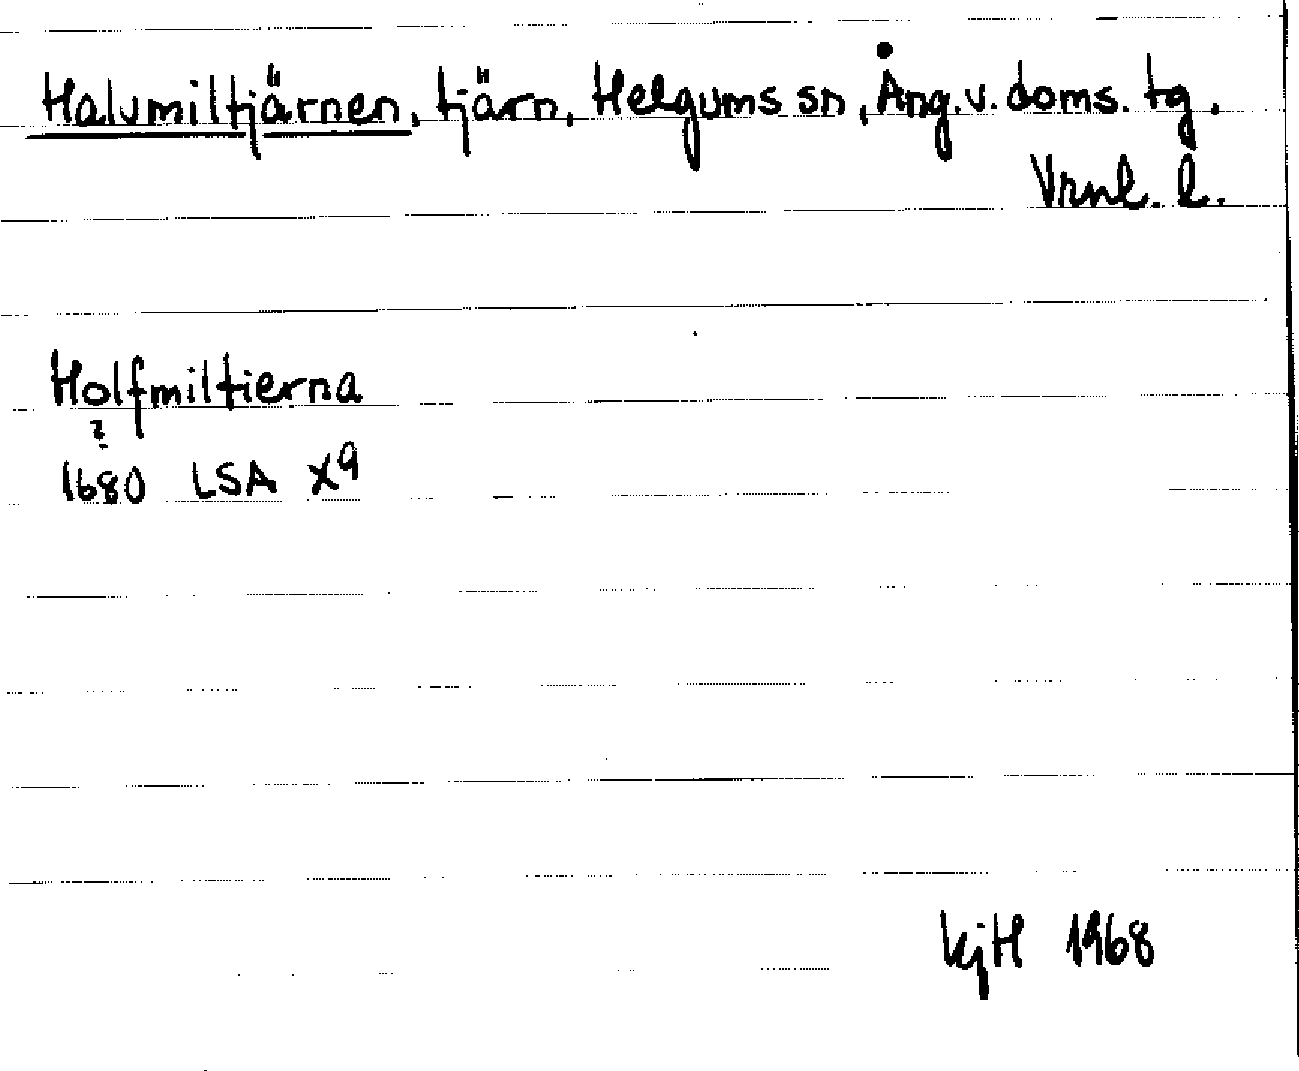 Halvmiltjärnen, tjärn, Helgums sn, Ång. v. doms. tg.
Vrnl. l.
Holfmiltierna
?
1680 LSA X9
kjH 1968